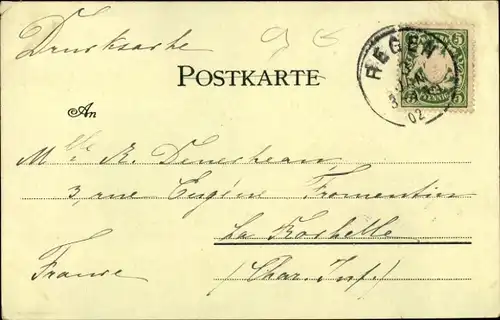 Drucksache
POSTKARTE
REGEN
02
5 5
PFENNIG
5 5
An
Mlle R.
3, rue Eugène Fromentin
La Rochelle
France (Char. Inf.)